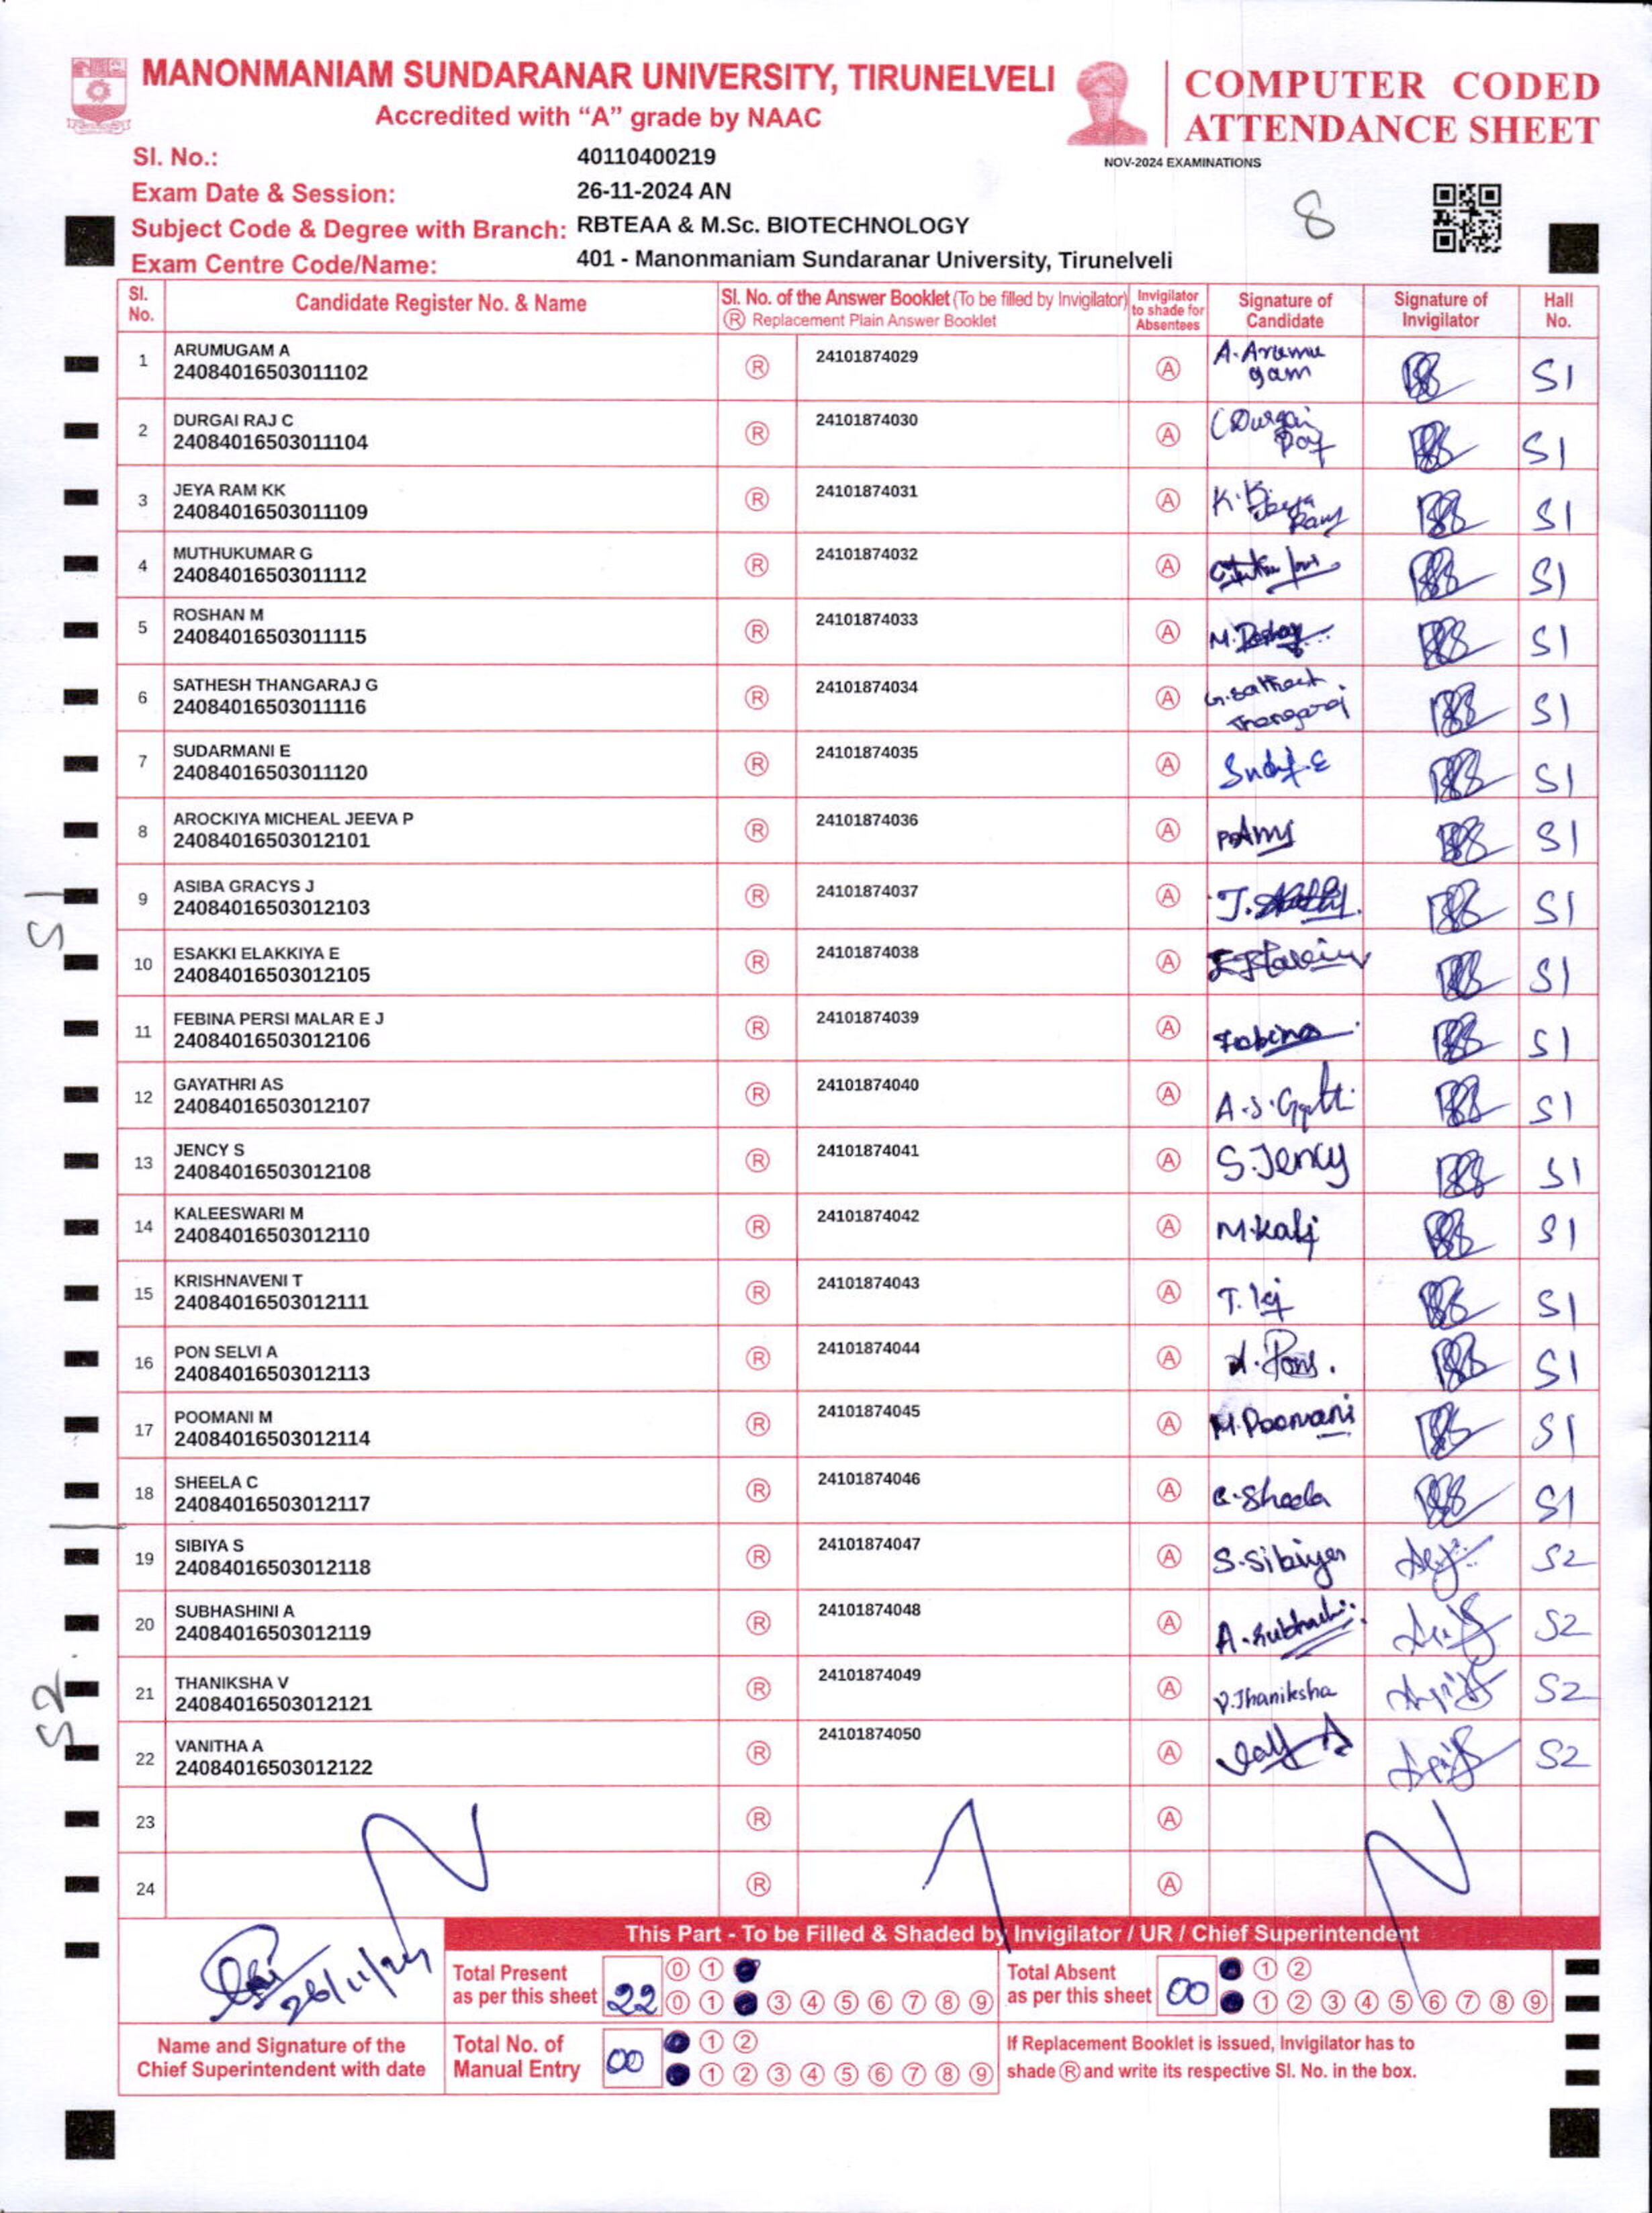 MANONMANIAM SUNDARANAR UNIVERSITY, TIRUNELVELI
Accredited with “A” grade by NAAC
COMPUTER CODED
ATTENDANCE SHEET
NOV-2024 EXAMINATIONS
Sl. No.: 40110400219
Exam Date & Session: 26-11-2024 AN
8
Subject Code & Degree with Branch: RBTEAA & M.Sc. BIOTECHNOLOGY
Exam Centre Code/Name: 401 - Manonmaniam Sundaranar University, Tirunelveli
Sl. No. Candidate Register No. & Name Sl. No. of the Answer Booklet (To be filled by Invigilator) Ⓡ Replacement Plain Answer Booklet Invigilator to shade for Absentees Signature of Candidate Signature of Invigilator Hall No.
1 ARUMUGAM A 24084016503011102 Ⓡ 24101874029 Ⓐ A. Arumugam S1
2 DURGAI RAJ C 24084016503011104 Ⓡ 24101874030 Ⓐ S1
3 JEYA RAM KK 24084016503011109 Ⓡ 24101874031 Ⓐ S1
4 MUTHUKUMAR G 24084016503011112 Ⓡ 24101874032 Ⓐ S1
5 ROSHAN M 24084016503011115 Ⓡ 24101874033 Ⓐ S1
6 SATHESH THANGARAJ G 24084016503011116 Ⓡ 24101874034 Ⓐ S1
7 SUDARMANI E 24084016503011120 Ⓡ 24101874035 Ⓐ S1
8 AROCKIYA MICHEAL JEEVA P 24084016503012101 Ⓡ 24101874036 Ⓐ S1
S1
9 ASIBA GRACYS J 24084016503012103 Ⓡ 24101874037 Ⓐ S1
10 ESAKKI ELAKKIYA E 24084016503012105 Ⓡ 24101874038 Ⓐ S1
11 FEBINA PERSI MALAR E J 24084016503012106 Ⓡ 24101874039 Ⓐ Febina S1
12 GAYATHRI AS 24084016503012107 Ⓡ 24101874040 Ⓐ S1
13 JENCY S 24084016503012108 Ⓡ 24101874041 Ⓐ S.Jency S1
14 KALEESWARI M 24084016503012110 Ⓡ 24101874042 Ⓐ M.Kali S1
15 KRISHNAVENI T 24084016503012111 Ⓡ 24101874043 Ⓐ S1
16 PON SELVI A 24084016503012113 Ⓡ 24101874044 Ⓐ S1
17 POOMANI M 24084016503012114 Ⓡ 24101874045 Ⓐ M.Poomani S1
18 SHEELA C 24084016503012117 Ⓡ 24101874046 Ⓐ C.Sheela S1
19 SIBIYA S 24084016503012118 Ⓡ 24101874047 Ⓐ S.Sibiya S2
20 SUBHASHINI A 24084016503012119 Ⓡ 24101874048 Ⓐ S2
S2
21 THANIKSHA V 24084016503012121 Ⓡ 24101874049 Ⓐ V.Thaniksha S2
22 VANITHA A 24084016503012122 Ⓡ 24101874050 Ⓐ S2
23 Ⓡ Ⓐ
24 Ⓡ Ⓐ
This Part - To be Filled & Shaded by Invigilator / UR / Chief Superintendent
26/11/24
Total Present as per this sheet 22
0 1
0 1 3 4 5 6 7 8 9
Total Absent as per this sheet 00
1 2
1 2 3 4 5 6 7 8 9
Name and Signature of the Chief Superintendent with date
Total No. of Manual Entry 00
1 2
1 2 3 4 5 6 7 8 9
If Replacement Booklet is issued, Invigilator has to
shade Ⓡ and write its respective Sl. No. in the box.